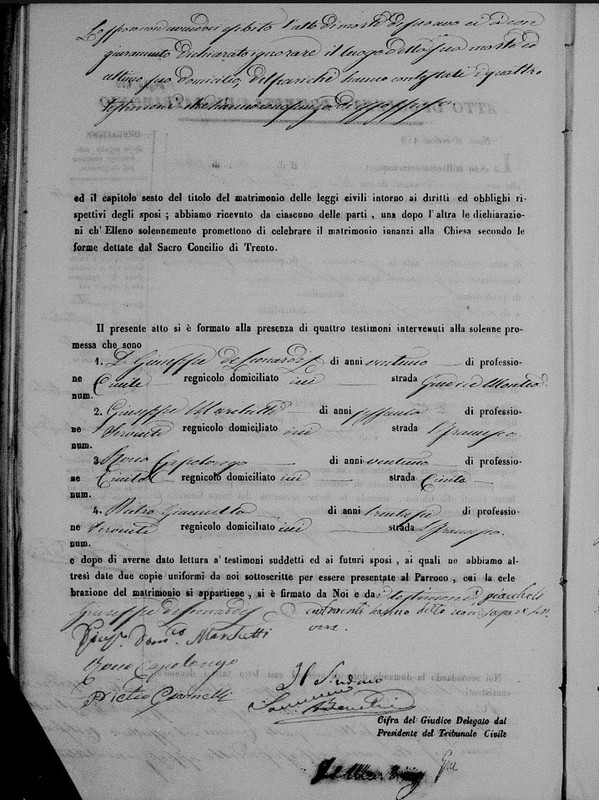 Lo sposo non avendo esibito l'atto di morte di suo avo ed à con
giuramento dichiarato ignorare il luogo della sua morte ed
ultimo suo domicilio, del che hanno contestati i quattro
testimoni
ed il capitolo sesto del titolo del matrimonio delle leggi civili intorno ai diritti ed obblighi ri-
spettivi degli sposi ; abbiamo ricevuto da ciascuno delle parti , una dopo l'altra le dichiarazio-
ni ch' Elleno solennemente promettono di celebrare il matrimonio innanzi alla Chiesa secondo le
forme dettate dal Sacro Concilio di Trento.
Il presente atto si è formato alla presenza di quattro testimoni intervenuti alla solenne pro-
messa che sono
1. D. Giuseppe de Leonardis di anni ventuno di professio-
ne Civile regnicolo domiciliato ivi strada
num.
2. Giuseppe Marchitti di anni sessanta di professio-
ne Servente regnicolo domiciliato ivi strada S. Francesco
num.
3. Capolongo di anni ventuno di professio-
ne Civile regnicolo domiciliato ivi strada Civita
num.
4. Pietro Giannelli di anni di professio-
ne Servente regnicolo domiciliato ivi strada S. Francesco
num.
e dopo di averne dato lettura a' testimoni suddetti ed ai futuri sposi , ai quali ne abbiamo al-
tresì date due copie uniformi da noi sottoscritte per essere presentate al Parroco , cui la cele
brazione del matrimonio si appartiene , si è firmato da Noi e da' testimoni giacchè li
contraenti hanno detto non sapere scri
vere.
Giuseppe de Leonardis
Marchitti
Capolongo
Pietro Giannelli
Il Sindaco
Cifra del Giudice Delegato dal
Presidente del Tribunale Civile